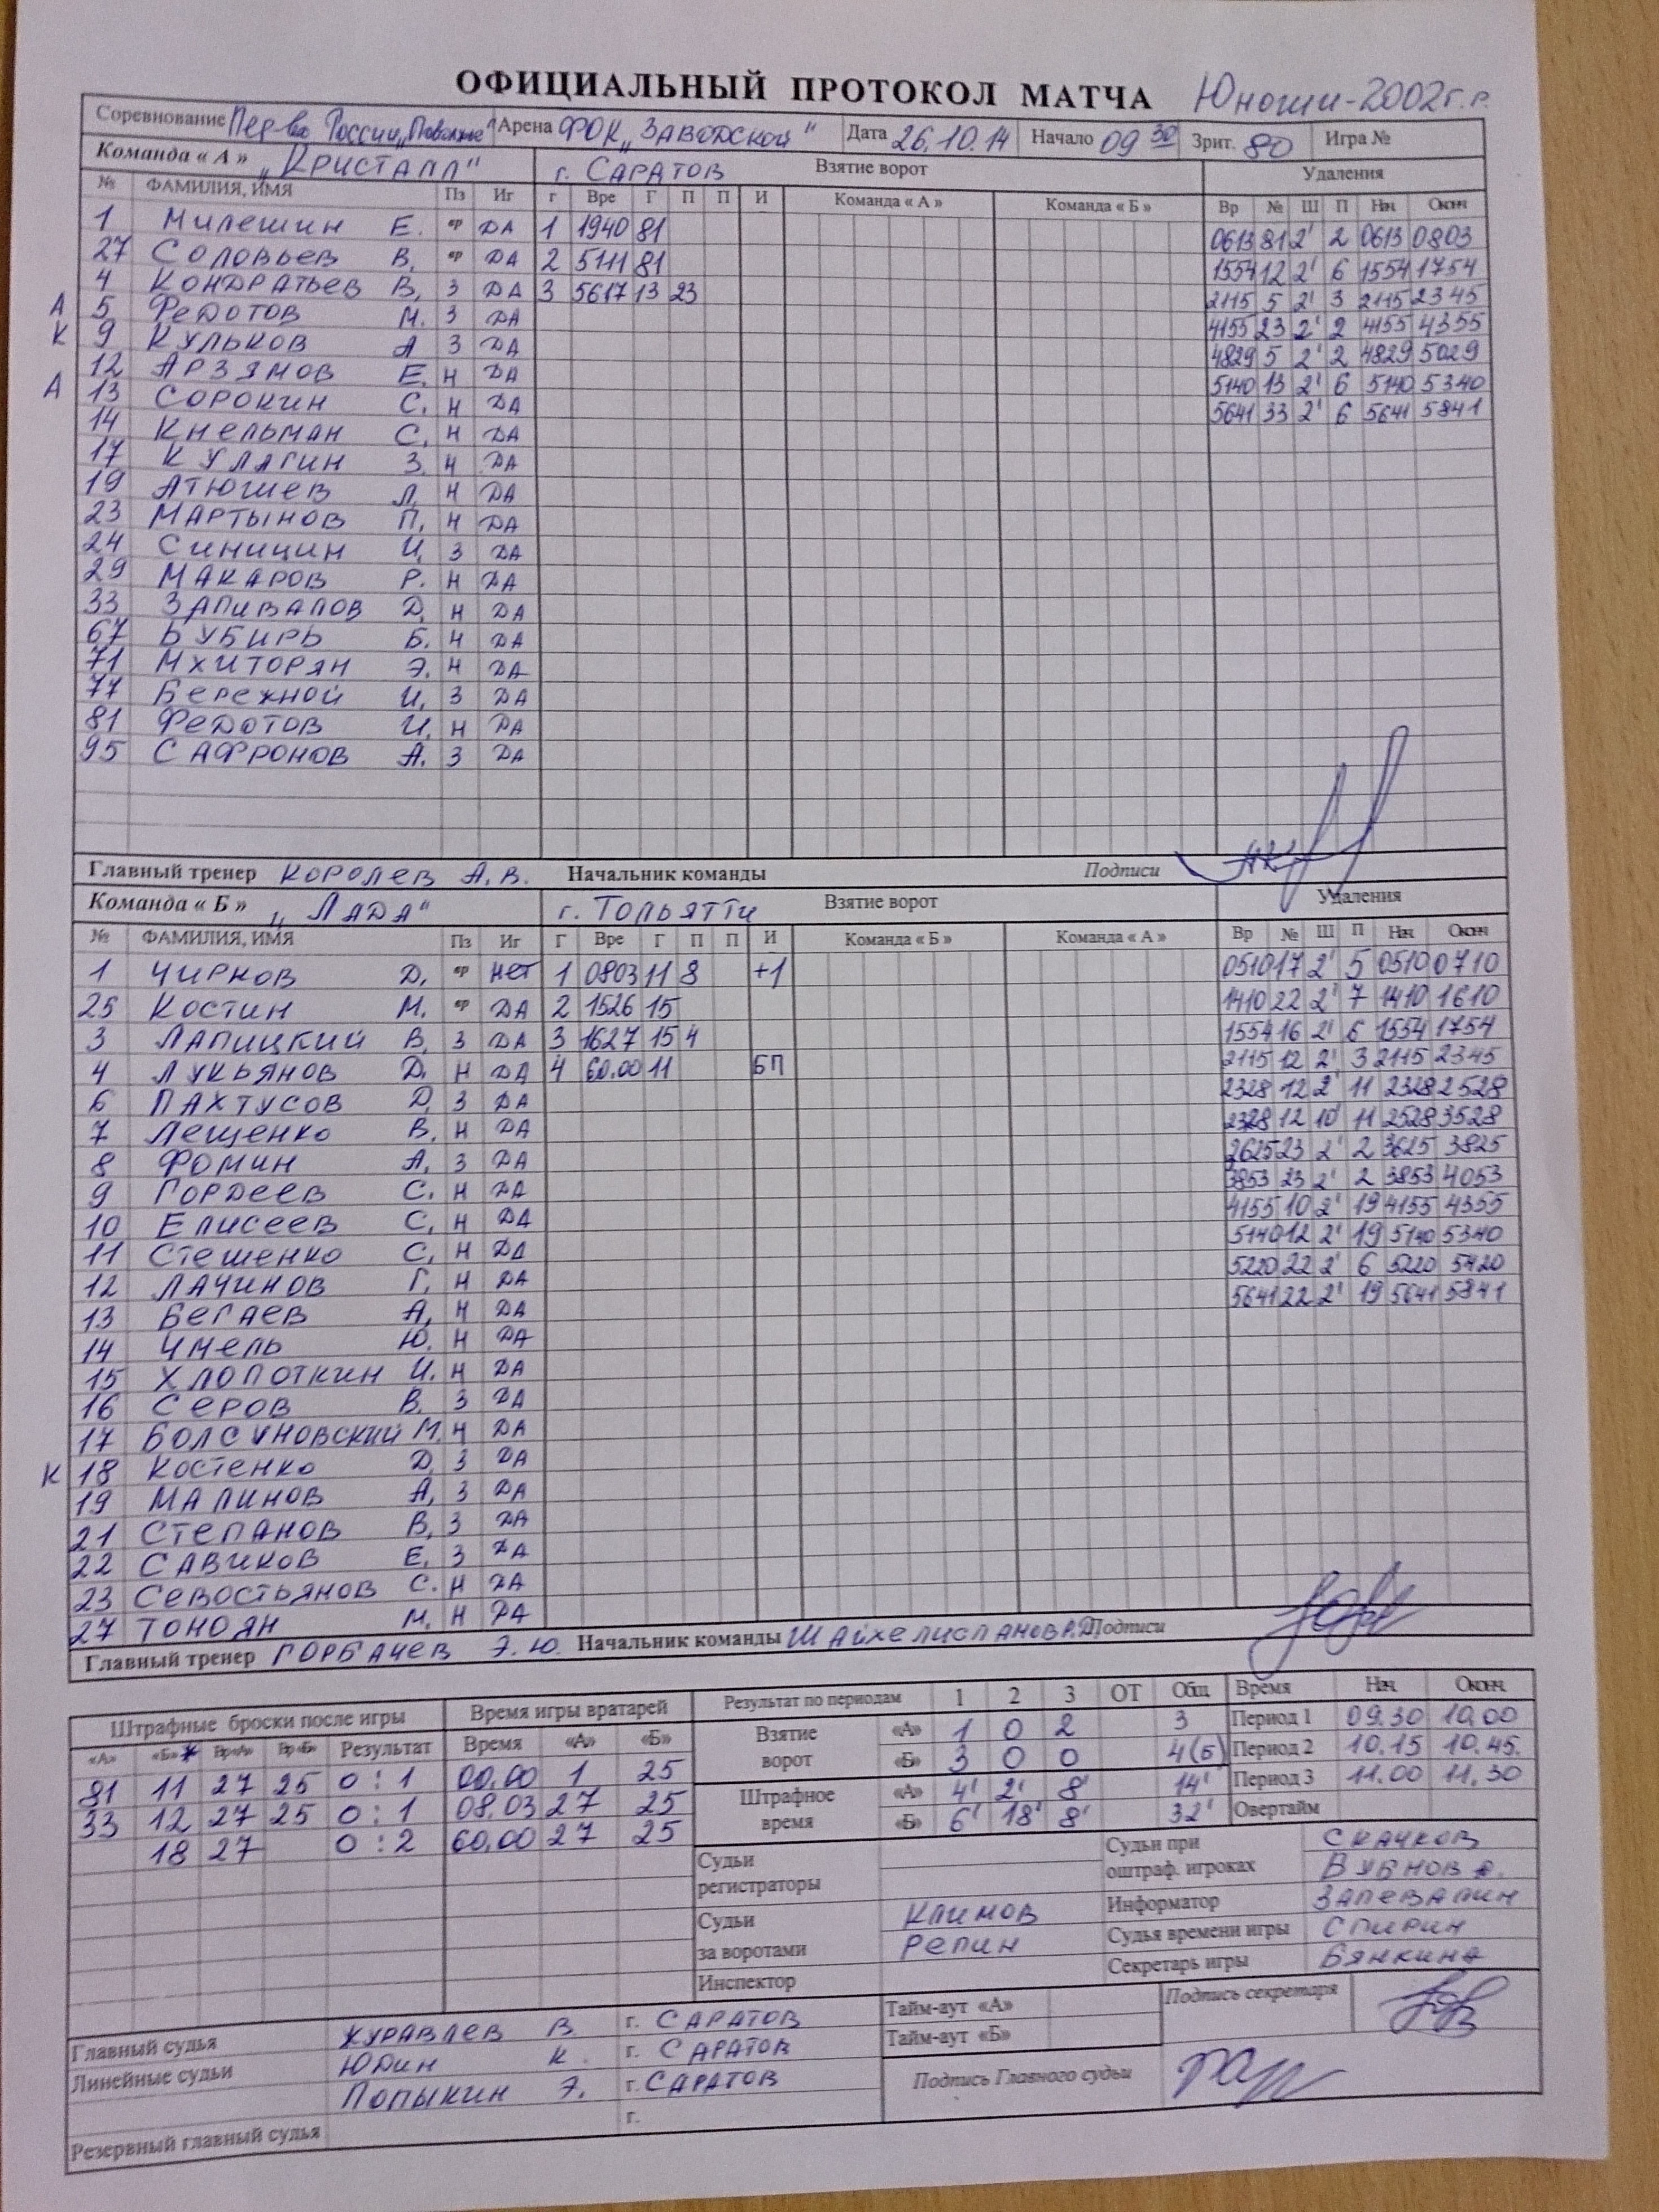 ОФИЦИАЛЬНЫЙ ПРОТОКОЛ МАТЧА Юноши-2002 г.р.
Соревнование Пер-во России „Поволжье" Арена ФОК „ЗАВОДСКОЙ" Дата 26.10.14 Начало 09 30 Зрит. 80 Игра №
Команда « А » „КРИСТАЛЛ" г. САРАТОВ Взятие ворот Удаления
№ ФАМИЛИЯ, ИМЯ Пз Иг г Вре Г П П И Команда « А » Команда « Б » Вр № Ш П Нач Оконч
1 МИЛЕШИН Е. вр ДА 1 1940 81 0613 81 2' 2 0613 0803
27 СОЛОВЬЕВ В. вр ДА 2 5111 81 1554 12 2' 6 1554 1754
4 КОНДРАТЬЕВ В. З ДА 3 5617 13 23 2115 5 2' 3 2115 2345
А 5 ФЕДОТОВ М. З ДА 4155 23 2' 2 4155 4355
К 9 КУЛЬКОВ А З ДА 4829 5 2' 2 4829 5029
12 АРЗЯМОВ Е. Н ДА 5140 13 2' 6 5140 5340
А 13 СОРОКИН С. Н ДА 5641 33 2' 6 5641 5841
14 КНЕЛЬМАН С. Н ДА
17 КУЛАГИН З. Н ДА
19 АТЮШЕВ Л. Н ДА
23 МАРТЫНОВ П. Н ДА
24 СИНИЦИН И. З ДА
29 МАКАРОВ Р. Н ДА
33 ЗАПИВАЛОВ Д. Н ДА
67 БУБИРЬ Б. Н ДА
71 МХИТОРЯН Э. Н ДА
77 БЕРЕЖНОЙ И. З ДА
81 ФЕДОТОВ И. Н ДА
95 САФРОНОВ А. З ДА
Главный тренер КОРОЛЕВ А.В. Начальник команды Подписи
Команда « Б » „ЛАДА" г. ТОЛЬЯТТИ Взятие ворот Удаления
№ ФАМИЛИЯ, ИМЯ Пз Иг Г Вре Г П П И Команда « Б » Команда « А » Вр № Ш П Нач Оконч
1 ЧИРКОВ Д. вр НЕТ 1 0803 11 8 +1 0510 17 2' 5 0510 0710
25 КОСТИН М. вр ДА 2 1526 15 1410 22 2' 7 1410 1610
3 ЛАПИЦКИЙ В. З ДА 3 1627 15 4 1554 16 2' 6 1554 1754
4 ЛУКЬЯНОВ Д. Н ДА 4 60.00 11 БП 2115 12 2' 3 2115 2345
6 ПАХТУСОВ Д. З ДА 2328 12 2' 11 2328 2528
7 ЛЕЩЕНКО В. Н ДА 2328 12 10' 11 2528 3528
8 ФОМИН А. З ДА 3625 23 2' 2 3625 3825
9 ГОРДЕЕВ С. Н ДА 3853 23 2' 2 3853 4053
10 ЕЛИСЕЕВ С. Н ДА 4155 10 2' 19 4155 4355
11 СТЕШЕНКО С. Н ДА 5140 12 2' 19 5140 5340
12 ЛАЧИНОВ Г. Н ДА 5220 22 2' 6 5220 5420
13 БЕГАЕВ А. Н ДА 5641 22 2' 19 5641 5841
14 ЧМЕЛЬ Ю. Н ДА
15 ХЛОПОТКИН И. Н ДА
16 СЕРОВ В. З ДА
17 БОЛСУНОВСКИЙ М. Н ДА
К 18 КОСТЕНКО Д. З ДА
19 МАЛИНОВ А. З ДА
21 СТЕПАНОВ В. З ДА
22 САВИКОВ Е. З ДА
23 СЕВОСТЬЯНОВ С. Н ДА
27 ТОНОЯН М. Н ДА
Главный тренер ГОРБАЧЕВ Э.Ю. Начальник команды ШАЙХЕЛИСЛАНОВ Р.Д. Подписи
Штрафные броски после игры Время игры вратарей Результат по периодам 1 2 3 ОТ Общ Время Нач Оконч
«А» «Б» Вр«А» Вр«Б» Результат Время «А» «Б» Взятие ворот «А» 1 0 2 3 Период 1 09.30 10.00
81 11 27 25 0:1 00.00 1 25 «Б» 3 0 0 4(Б) Период 2 10.15 10.45.
33 12 27 25 0:1 08.03 27 25 Штрафное время «А» 4' 2' 8' 14' Период 3 11.00 11.30
18 27 0:2 60.00 27 25 «Б» 6' 18' 8' 32' Овертайм
Судьи регистраторы Судьи при оштраф. игроках СКАЧКОВ
ВУБНОВ
Судьи за воротами КЛИМОВ Информатор ЗАПЕВАЛИН
РЕПИН Судья времени игры СПИРИН
Инспектор Секретарь игры БЯНКИНА
Главный судья ЖУРАВЛЕВ В. г. САРАТОВ Тайм-аут «А» Подпись секретаря
Линейные судьи ЮДИН К. г. САРАТОВ Тайм-аут «Б»
ПОПЫКИН Э. г. САРАТОВ Подпись Главного судьи
Резервный главный судья г.